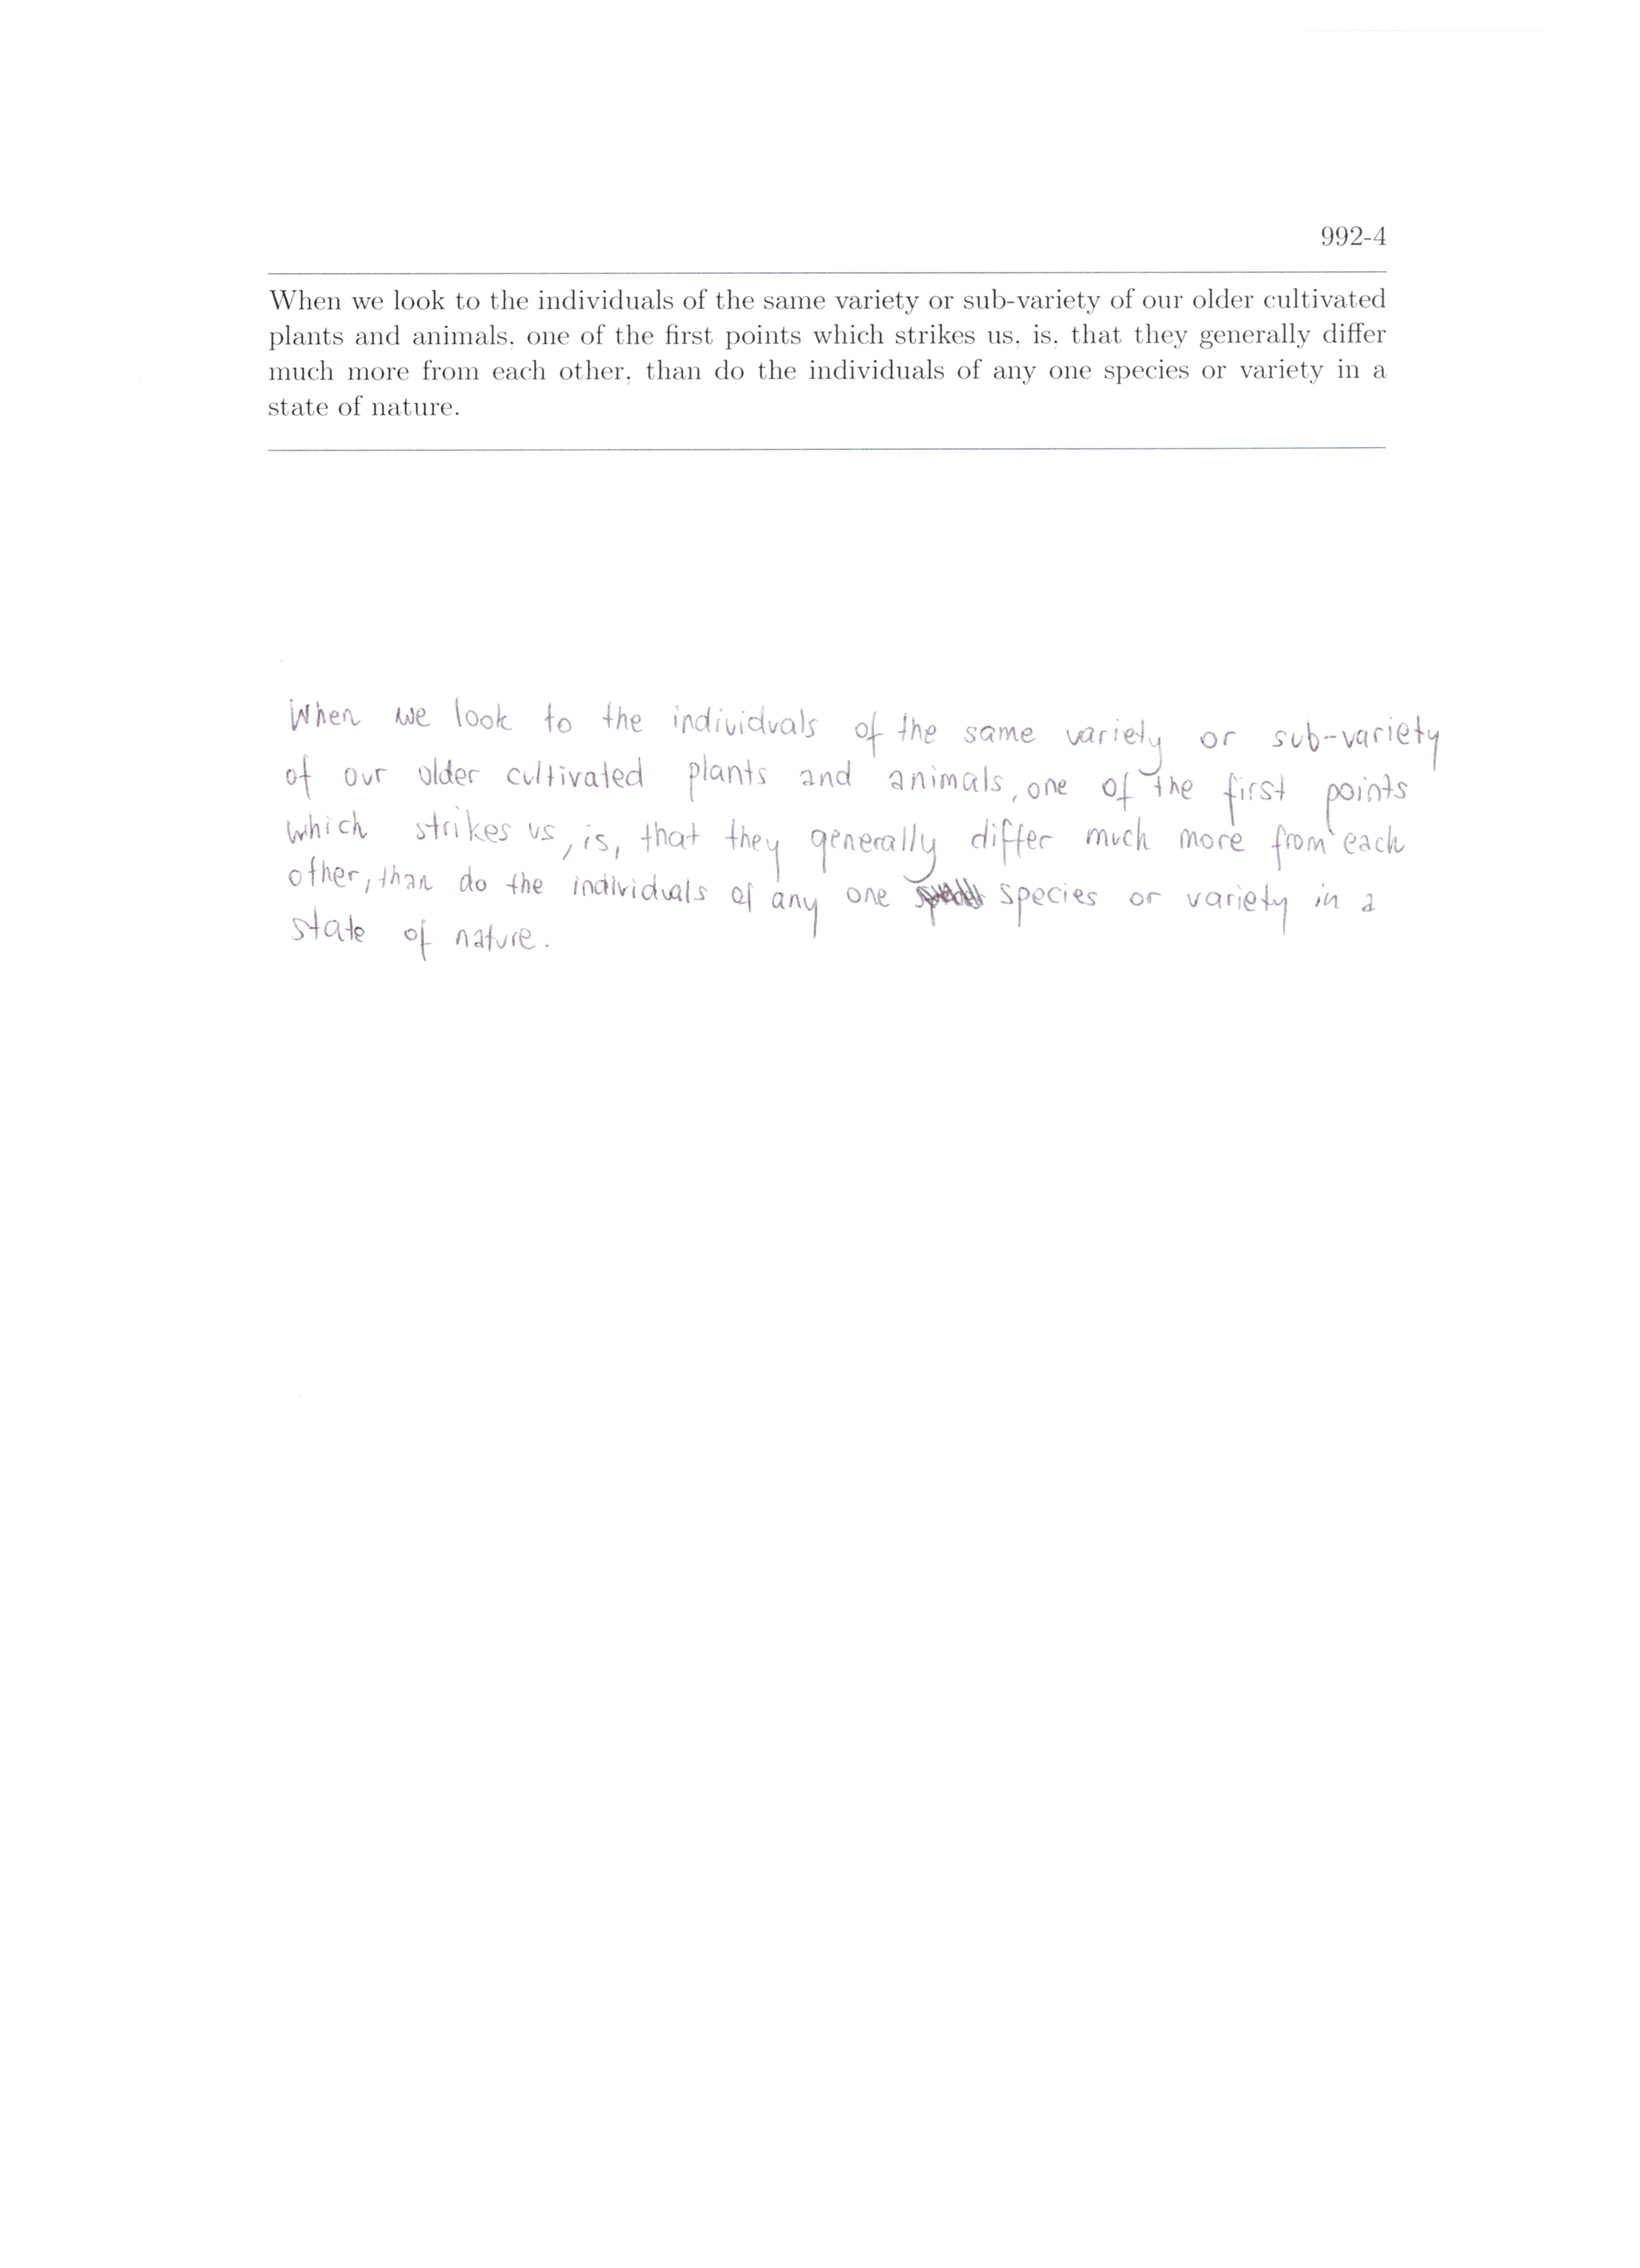 992-4
When we look to the individuals of the same variety or sub-variety of our older cultivated
plants and animals, one of the first points which strikes us, is, that they generally differ
much more from each other, than do the individuals of any one species or variety in a
state of nature.
When we look to the individuals of the same variety or sub-variety
of our older cultivated plants and animals, one of the first points
which strikes us, is, that they generally differ much more from each
other, than do the individuals of any one species or variety in a
state of nature.